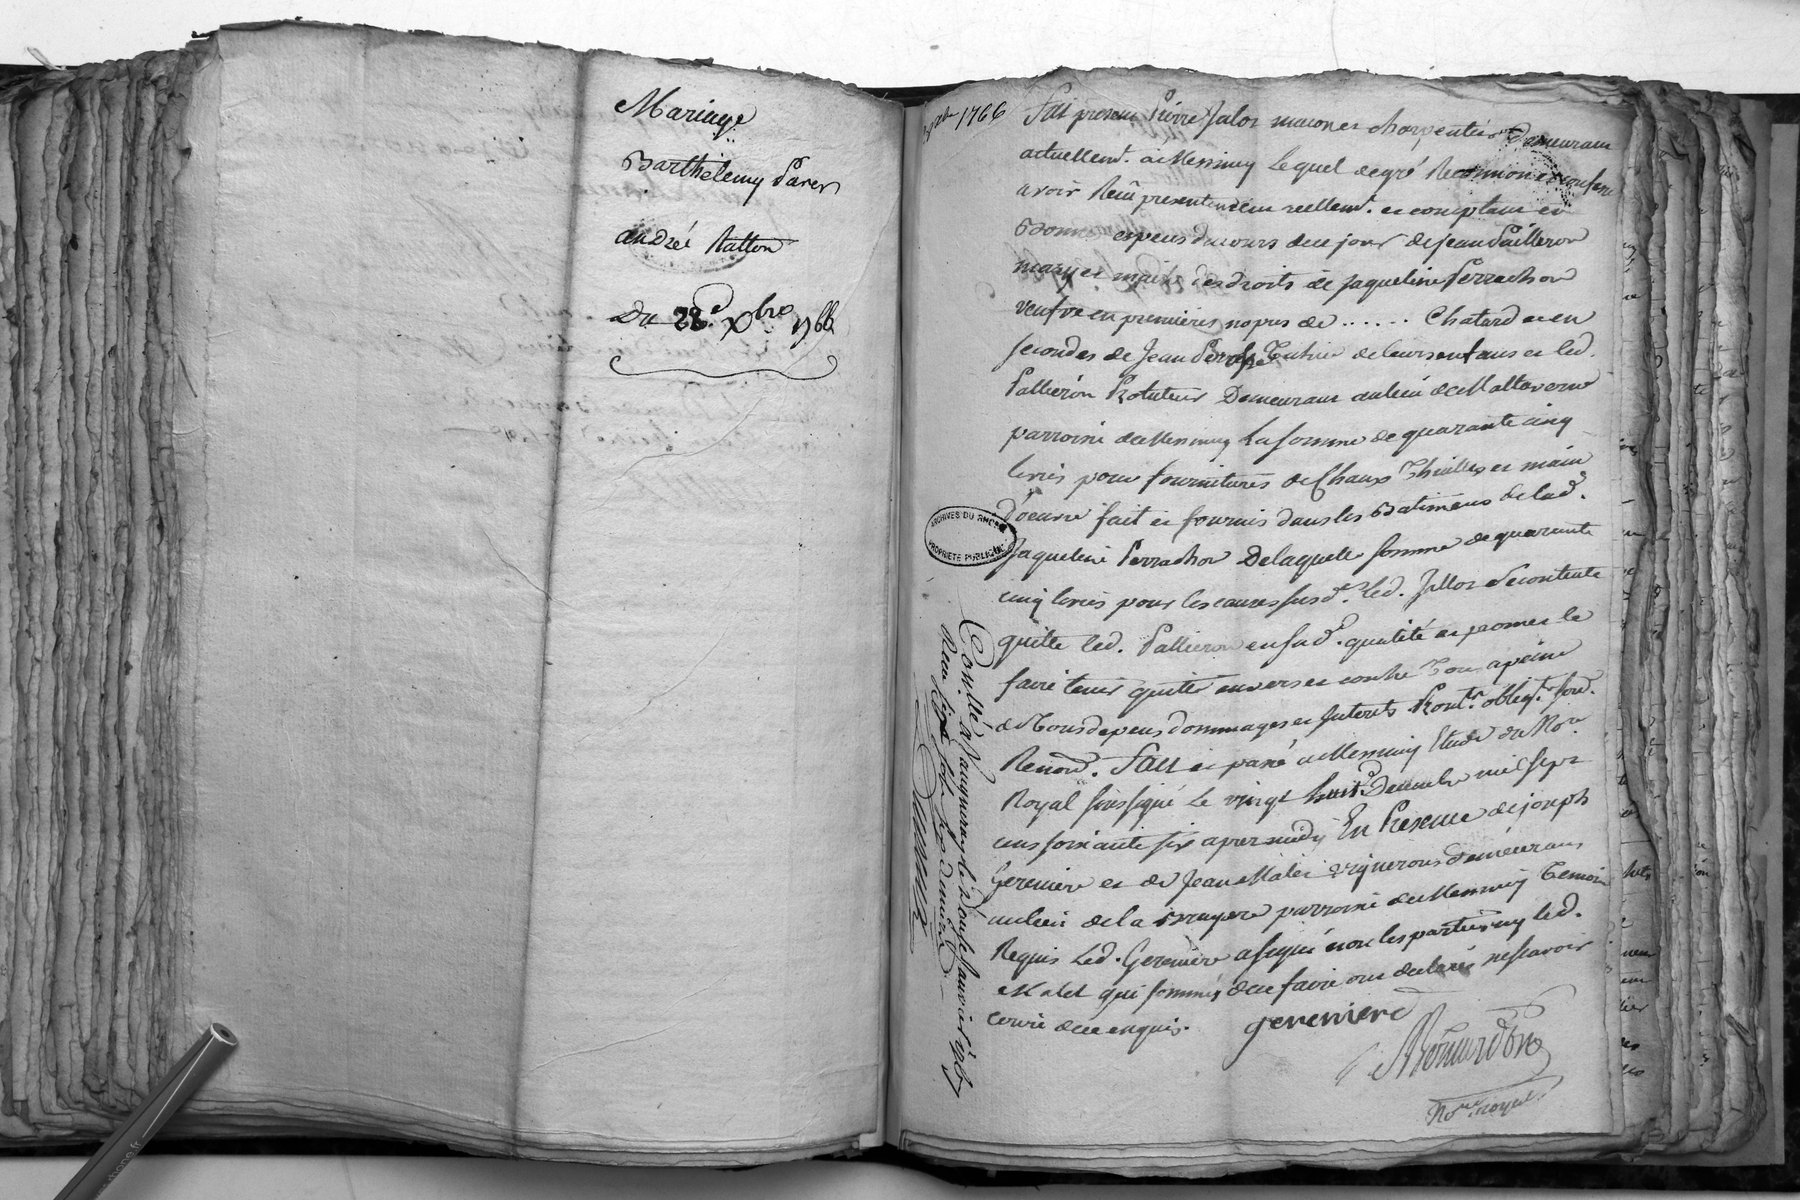 Mariage
Barthelemy Parer
andrée Ratton
Du 28e. Xbre 1766
Xbre 1766
Fut present Pierre Jalos macon et charpentier Demeurant
actuellemt. a Messimy Lequel de gré Reconnoit et confesse
avoir Reçu presentement reellemt. et comptant en
Bonnes especes du cours de ce jour de Jean Pailleron
mary et maitre des droits de Jaqueline Perrachon
veufve en premieres nopces de ...... Chatard et en
secondes de Jean Tutrice de leurs enfans et led.
Pallieron Protuteur Demeurant au lieu de Maltaverne
parroisse de Messimy La somme de quarante cinq
livres pour fournitures de Chaux Thuilles et main
d'oeuvre fait et fournis dans les Batimens de lad.
Jaqueline Perrachon De laquelle somme de quarante
cinq livres pour les causes susd. led. Jallos se contente
quitte led. Pallieron en sad. qualité et promet le
faire tenir quitte envers et contre Tous a peine
de Tous depens dommages et Interets
Renond. Fait et passé a Messimy Etude du Nore.
Royal soussigné Le vingt huit Decembre mil sept
cens soixante six apres midy En Presence de joseph
Gereniere et de Jean Malet vignerons demeurans
au lieu de la Bruyere parroisse de Messimy Temoins
Requis Led. Gereniere a signé non les parties ny led.
Malet qui sommés de ce faire ont declarés ne scavoir
ecrire de ce enquis. gereniere
Nore. royal
ARCHIVES DU RHONE
PROPRIETE PUBLIQUE
Conllé a Vaugneray le Douse Janvier 1767
Reçu